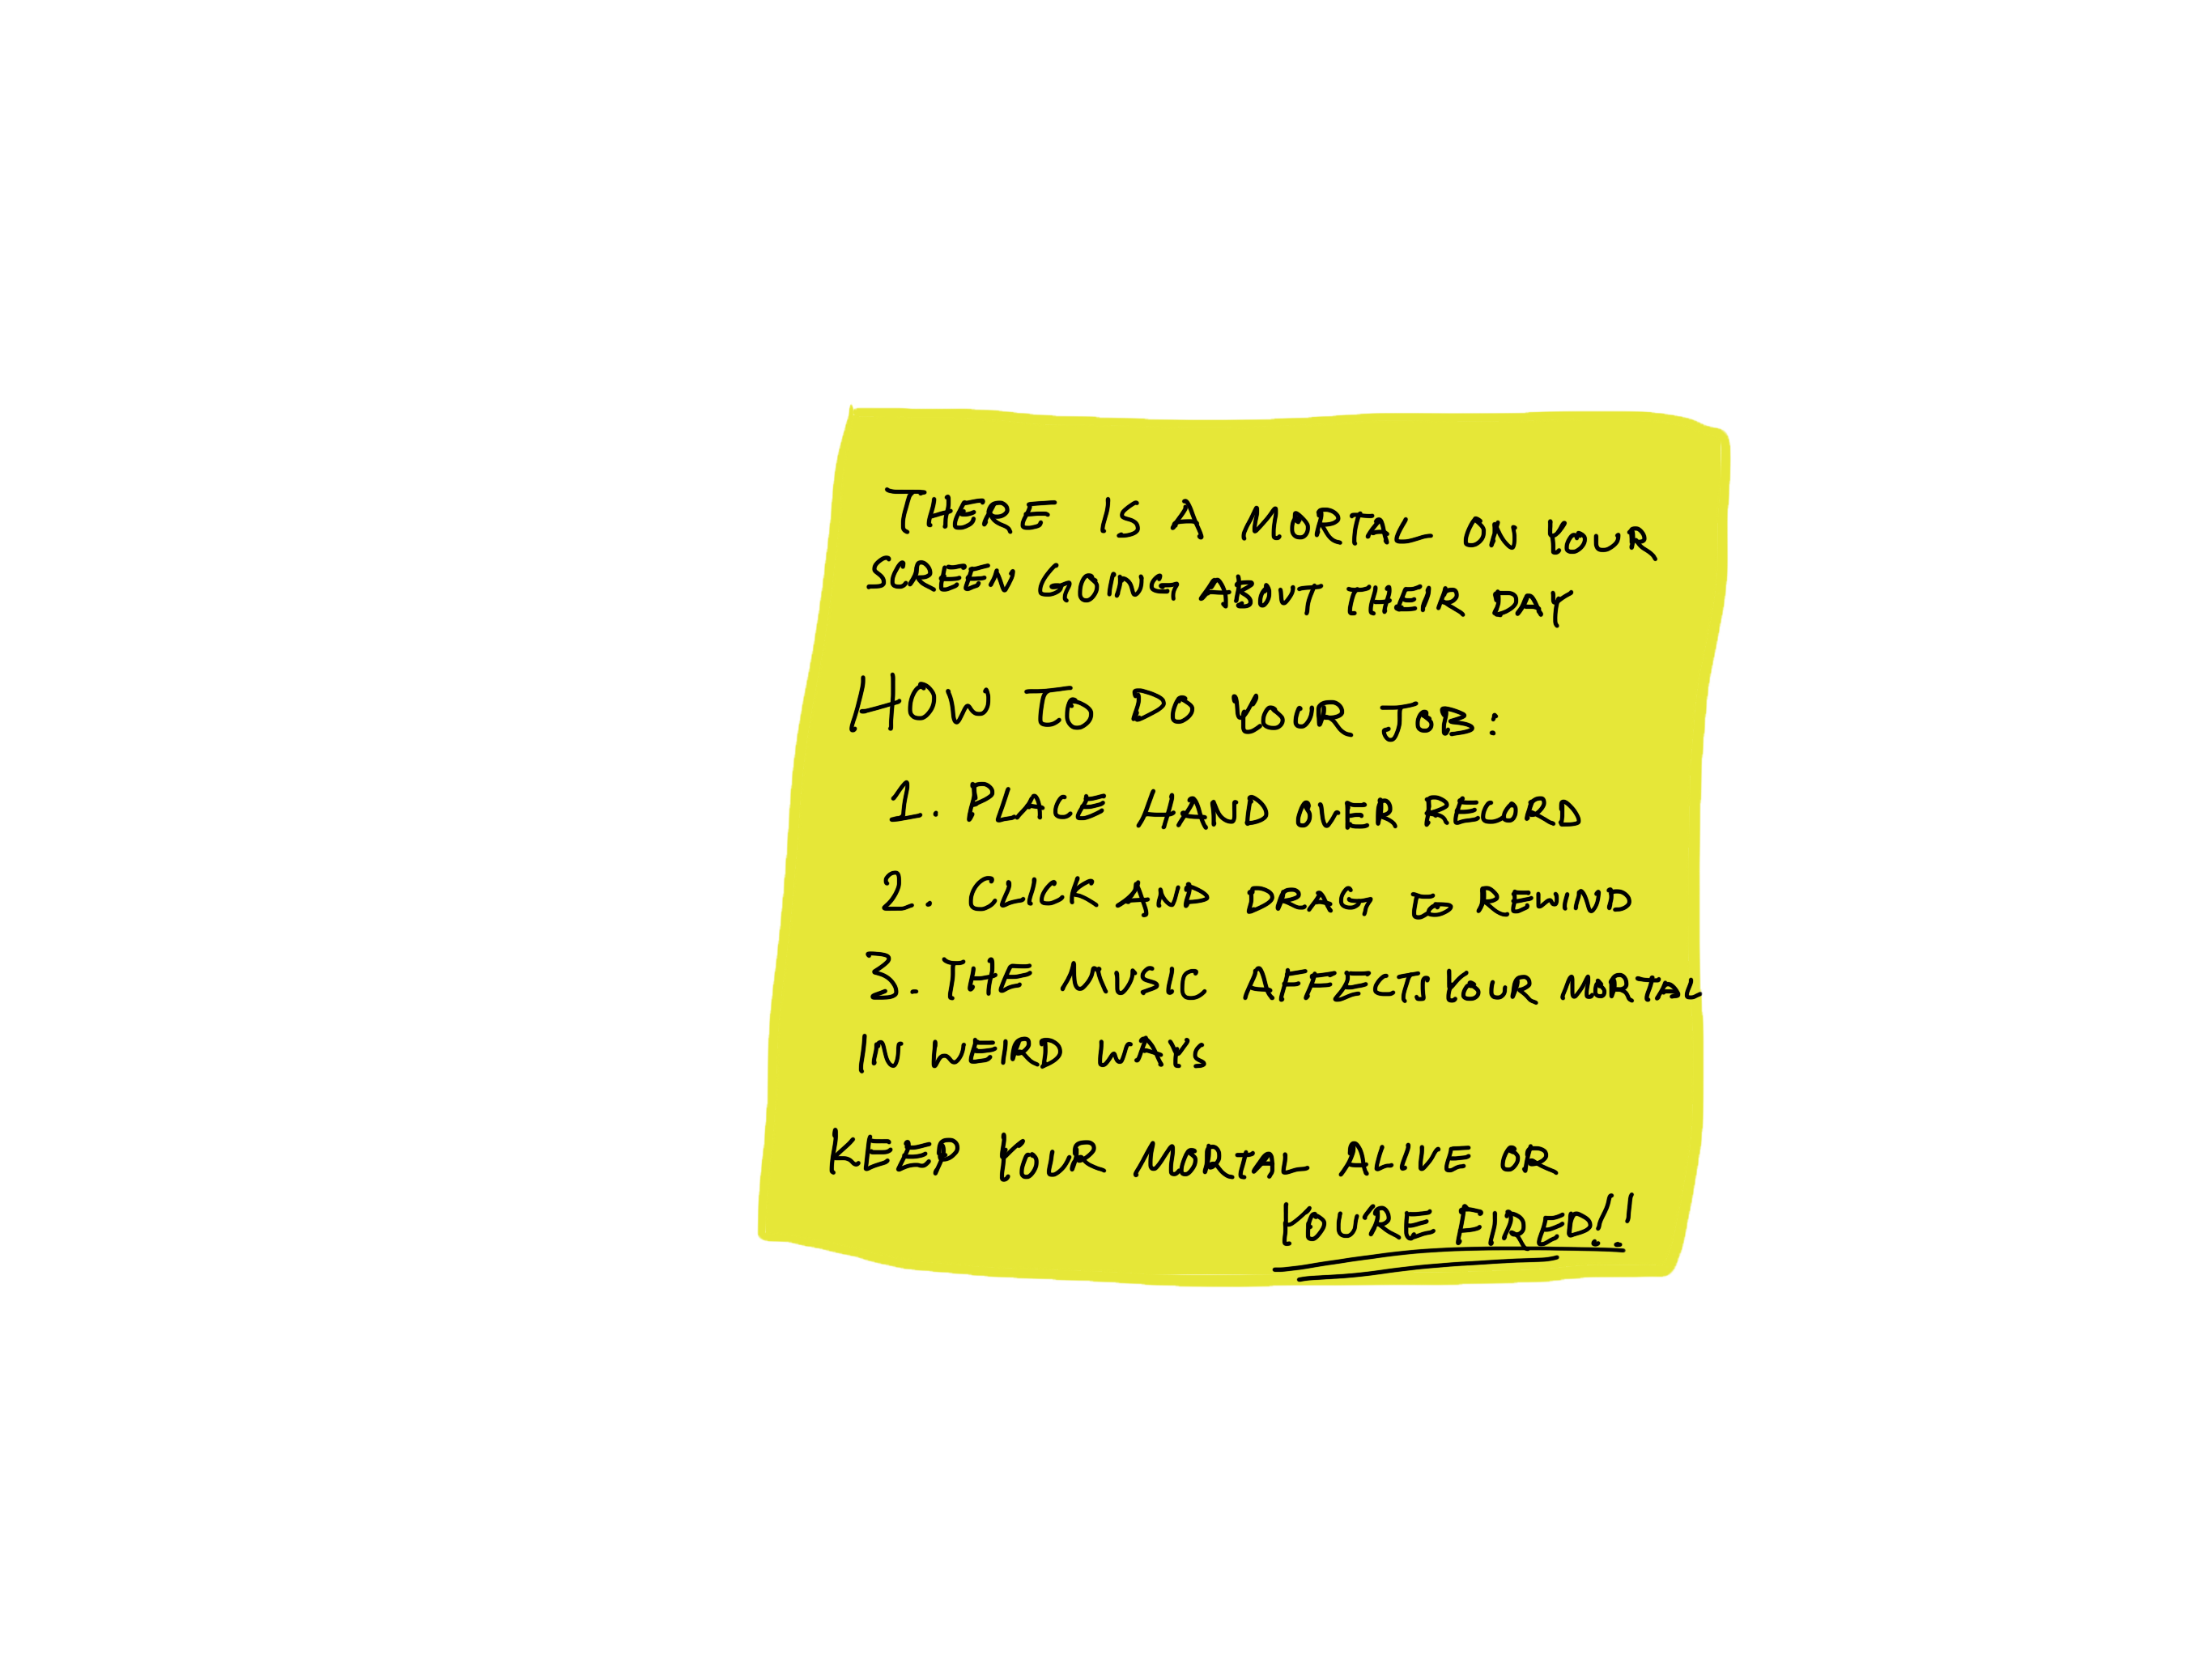 THERE IS A MORTAL ON YOUR
SCREEN GOING ABOUT THEIR DAY
HOW TO DO YOUR JOB:
1. PLACE HAND OVER RECORD
2. CLICK AND DRAG TO REWIND
3. THE MUSIC AFFECTS YOUR MORTAL
IN WEIRD WAYS
KEEP YOUR MORTAL ALIVE OR
YOURE FIRED!!